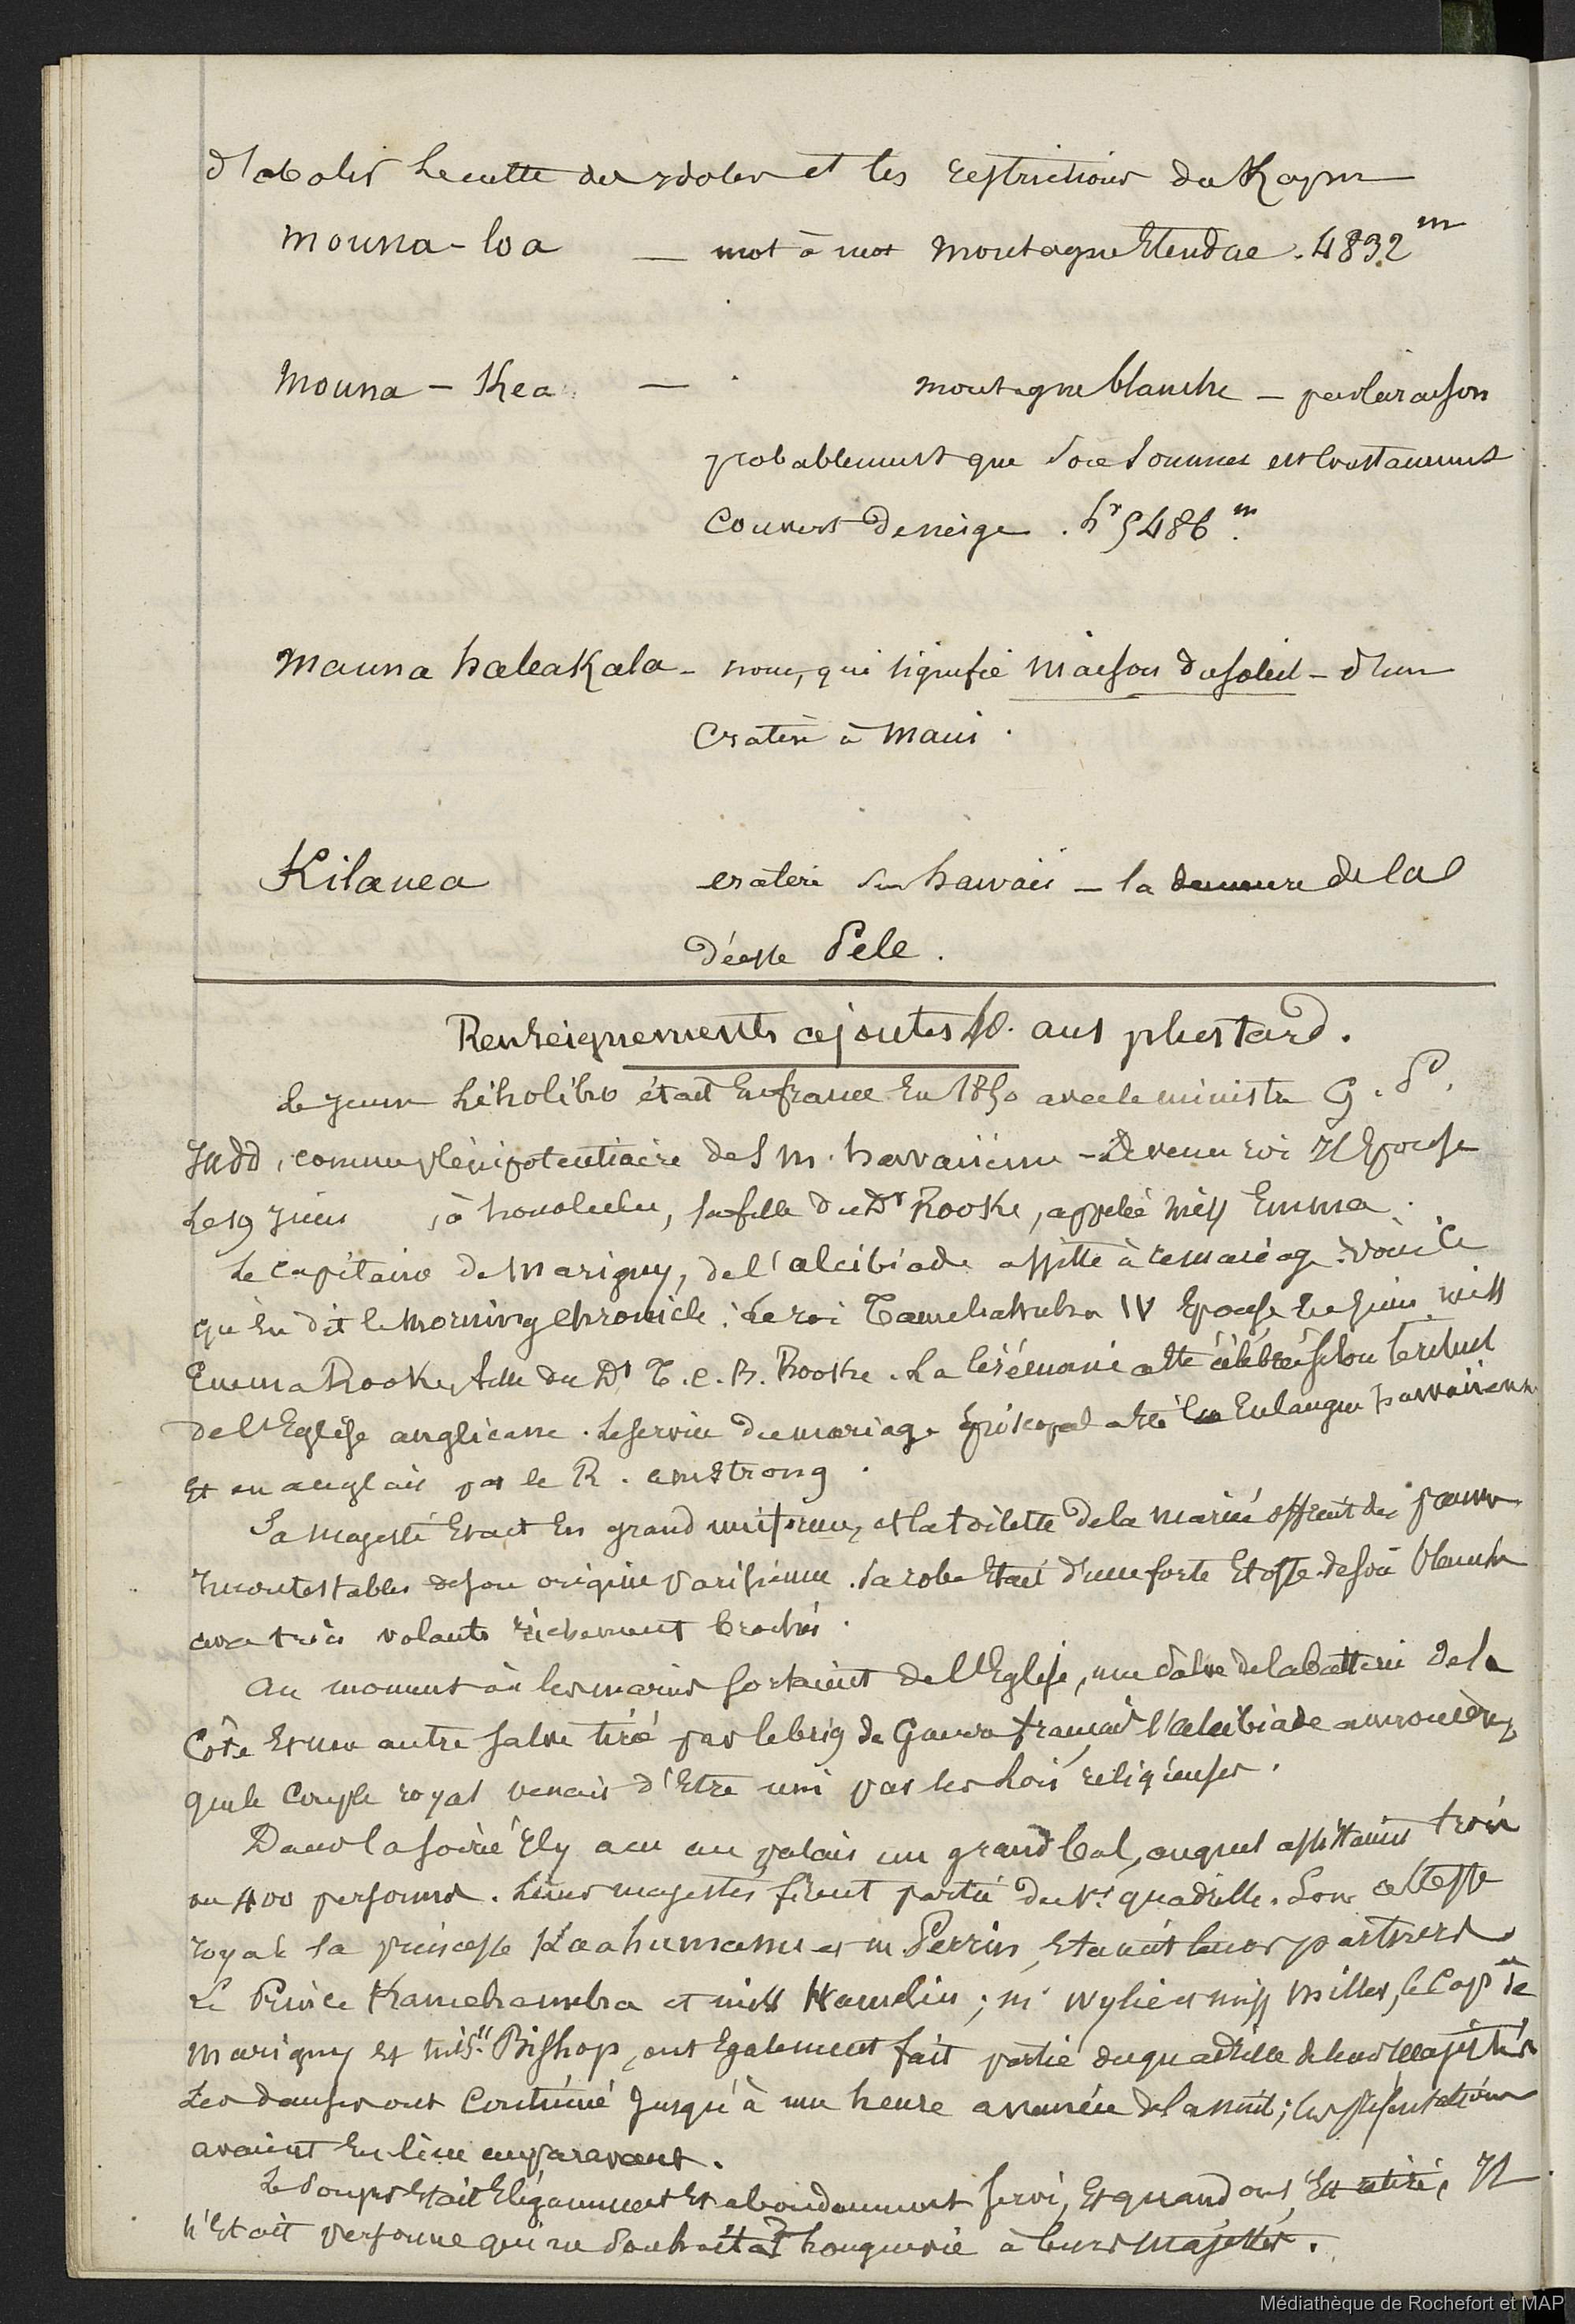 d'abolir le culte des idoles et les restrictions du Kapu
Mouna-loa — mot à mot montagne Etendue. 4832 m
Mouna-Kea — montagne blanche — par la raison
probablement que son sommet est constamment
couvert de neige. hr 5486 m.
Mauna haleakala - nom, qui signifie maison du soleil - d'un
cratère à Maui.
Kilauea cratère sur hawaii — la demeure de la
déesse Pele.
Renseignements ajoutés 40. ans plus tard.
Le jeune Liholiho était En france En 1850 avec le ministre G. P.
Judd, comme plénipotentiaire de S. m. hawaiienne - Devenu roi Il Epouse
Le 19 Juin , à honolulu, la fille du Dr Rooke, appelée miss Emma.
Le capitaine de Marigny, de l'alcibiade assiste à ce mariage. Voici ce
qu'en dit le morning chronicle : Le roi Tamehameha IV Epouse le Juin miss
Emma Rooke, fille du Dr T. C. B. Rooke. La Cérémonie a été célébrée selon le rituel
de l'Eglise anglicane. Le service du mariage Episcopal a été lu En langue hawaiienne
Et en anglais par le R. armstrong.
Sa Majesté Etait En grand uniforme, et la toilette de la mariée offrait des preuves
Incontestables de son origine parisienne. Sa robe Etait d'une forte Etoffe de soie blanche
avec trois volants richement brochés.
Au moment où les mariés sortaient de l'Eglise, une salve de la batterie de la
Côte Et une autre salve tirée par le brig de Guerre français l'alcibiade annoncèrent
que le couple royal venait d'Etre uni par les lois religieuses.
Dans la soirée Il y a eu au palais un grand bal, auquel assistaient trois
ou 400 personnes. Leurs majestés firent partie du 1er quadrille. Son altesse
royale la princesse Kaahumanu et m Perrin, Etaient leurs partners.
Le Prince Kamehameha et miss Hamelin ; Mr Wylie et miss Miller, le Capne de
Marigny Et Miss Bishop, ont Egalement fait partie du quadrille de leurs Majestés
Les danses ont continué Jusqu'à une heure avancée de la nuit ; les présentations
avaient Eu lieu auparavant.
Le souper Etait Elégamment Et abondamment servi, Et quand on s'Est retiré, Il
n'Etait personne qui ne souhaitât longue vie à leurs Majestés.
Médiathèque de Rochefort et MAP